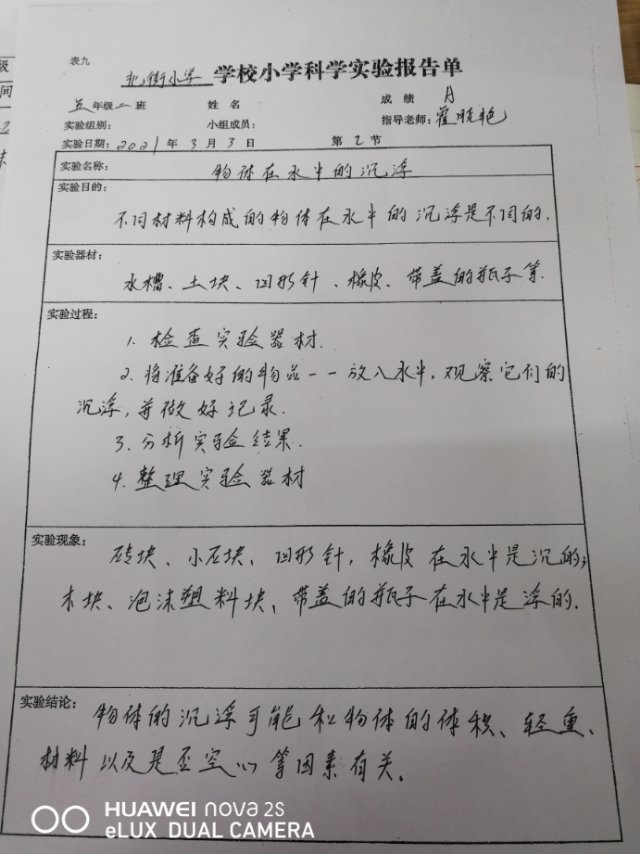 级
间
表九
北街小学 学校小学科学实验报告单
五年级二班 姓名 成绩 A
实验组别: 小组成员: 指导老师: 翟晓艳
实验日期: 2021 年 3 月 3 日 第 2 节
实验名称: 物体在水中的沉浮
实验目的:
不同材料构成的物体在水中的沉浮是不同的.
实验器材:
水槽、土块、回形针、橡皮、带盖的瓶子等.
实验过程:
1. 检查实验器材.
2. 将准备好的物品一一放入水中,观察它们的
沉浮,并做好记录.
3. 分析实验结果.
4. 整理实验器材
实验现象:
砖块、小石块、回形针,橡皮在水中是沉的;
木块、泡沫塑料块、带盖的瓶子在水中是浮的.
实验结论:
物体的沉浮可能和物体的体积、轻重、
材料以及是否空心等因素有关。
HUAWEI nova 2S
eLUX DUAL CAMERA